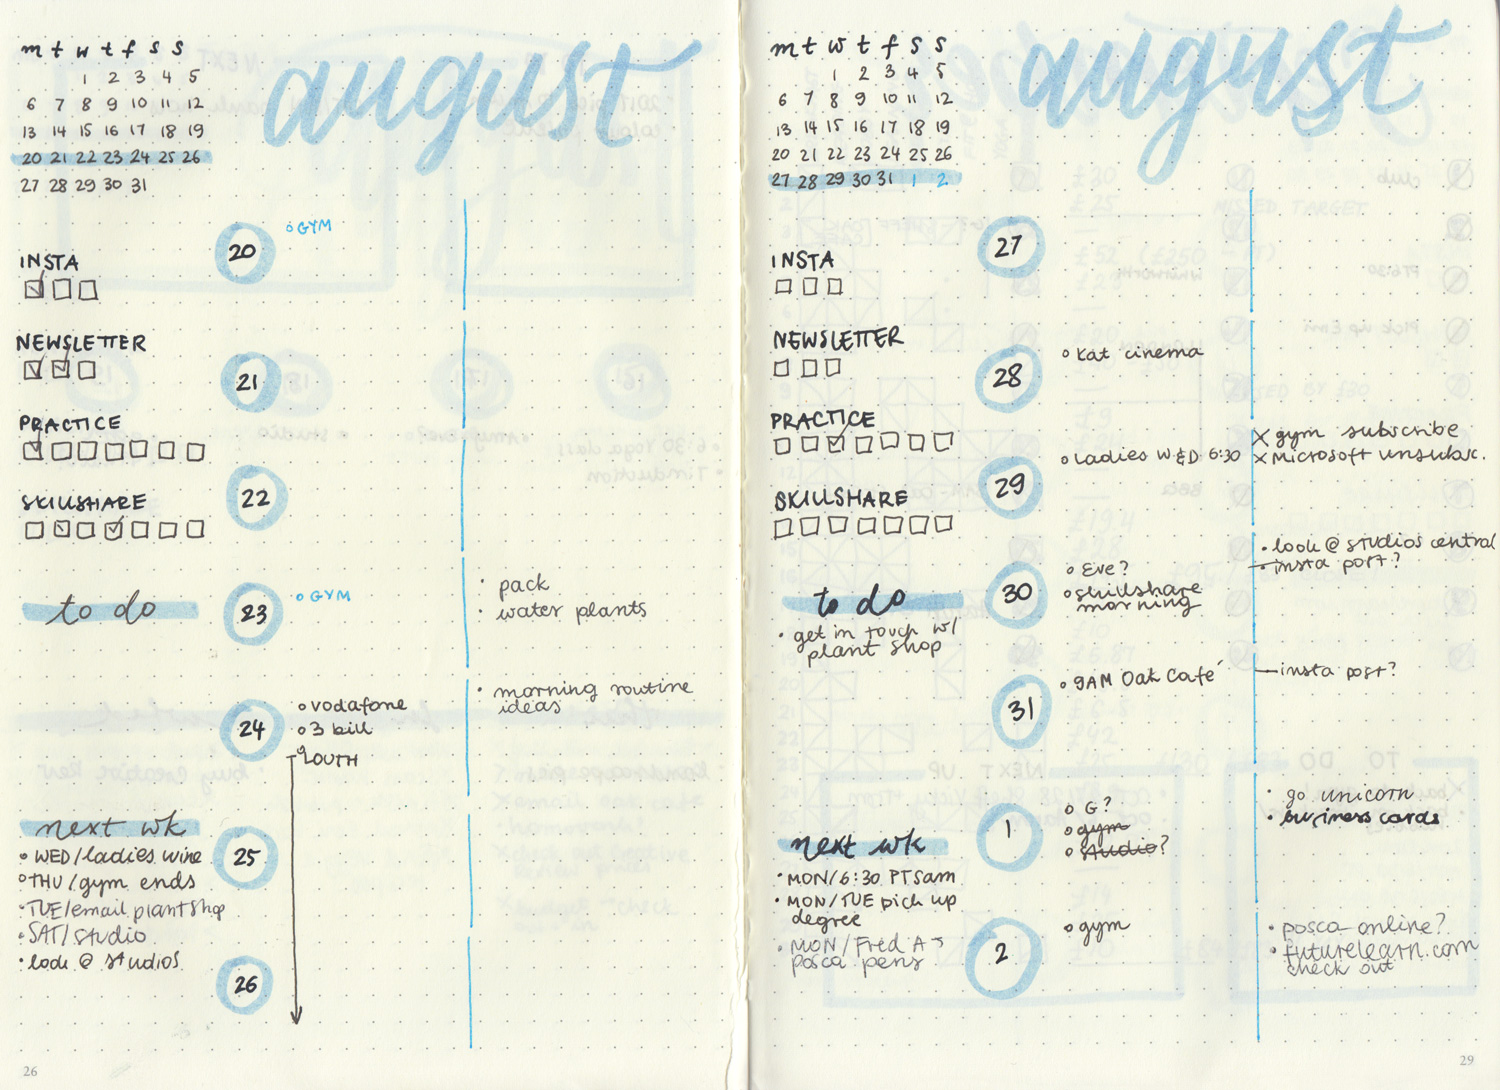 m t w t f s s
1 2 3 4 5
6 7 8 9 10 11 12
13 14 15 16 17 18 19
20 21 22 23 24 25 26
27 28 29 30 31
august
INSTA
NEWSLETTER
PRACTICE
SKILLSHARE
to do
next wk
• WED/ladies wine
• THU/gym ends
• TUE/email plant shop
• SAT/studio
• look @ studios
20
• GYM
21
22
23
• GYM
• pack
• water plants
24
• vodafone
• 3 bill
• LOUTH
• morning routine
ideas
25
26
26
m t w t f s s
1 2 3 4 5
6 7 8 9 10 11 12
13 14 15 16 17 18 19
20 21 22 23 24 25 26
27 28 29 30 31 1 2
august
INSTA
NEWSLETTER
PRACTICE
SKILLSHARE
to do
• get in touch w/
plant shop
next wk
• MON/6:30 PT Sam
• MON/TUE pick up
degree
• MON/Fred A
posca pens
27
28
• Kat cinema
29
• Ladies W&D 6:30
x gym subscribe
x Microsoft unsubsc.
30
• Eve?
• skillshare
morning
• look @ studios central
– insta post?
31
• 9AM Oak Café
– insta post?
1
• G?
• gym
• studio?
• go unicorn
• business cards
2
• gym
• posca online?
• futurelearn.com
check out
29